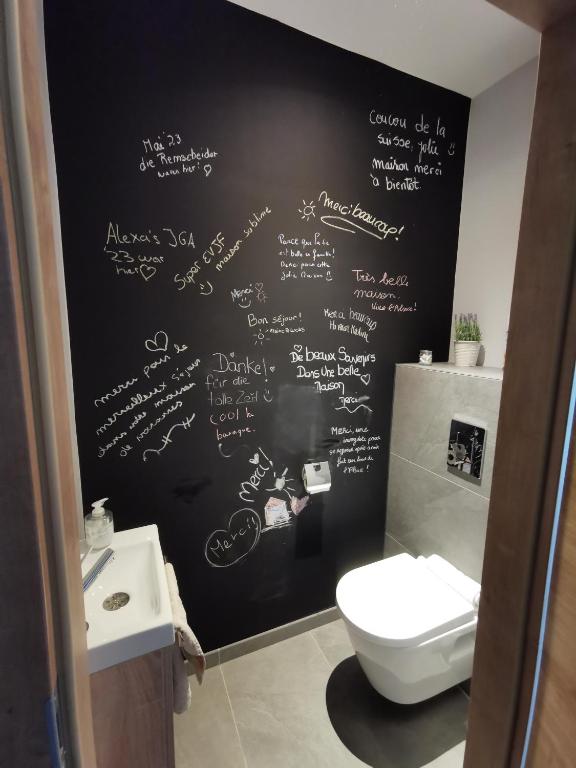 Mai 23
die Remscheider
waren hier!
Coucou de la
suisse, jolie
maison merci
à bientôt.
Alexa's JGA
'23 war
hier
Super EVJF
maison sublime
Merci beaucoup!
Parce que la vie
est belle en famille!
Merci pour cette
jolie maison
Merci
Très belle
maison.
Vive l'Alsace!
Bon séjour!
Merci beaucoup
merci pour le
merveilleux séjour
dans votre maison
de vacances
Danke!
für die
tolle Zeit
cool la
baraque.
De beaux Souvenirs
Dans Une belle
Maison
Merci
Merci, une
incroyable
Merci!
Merci!